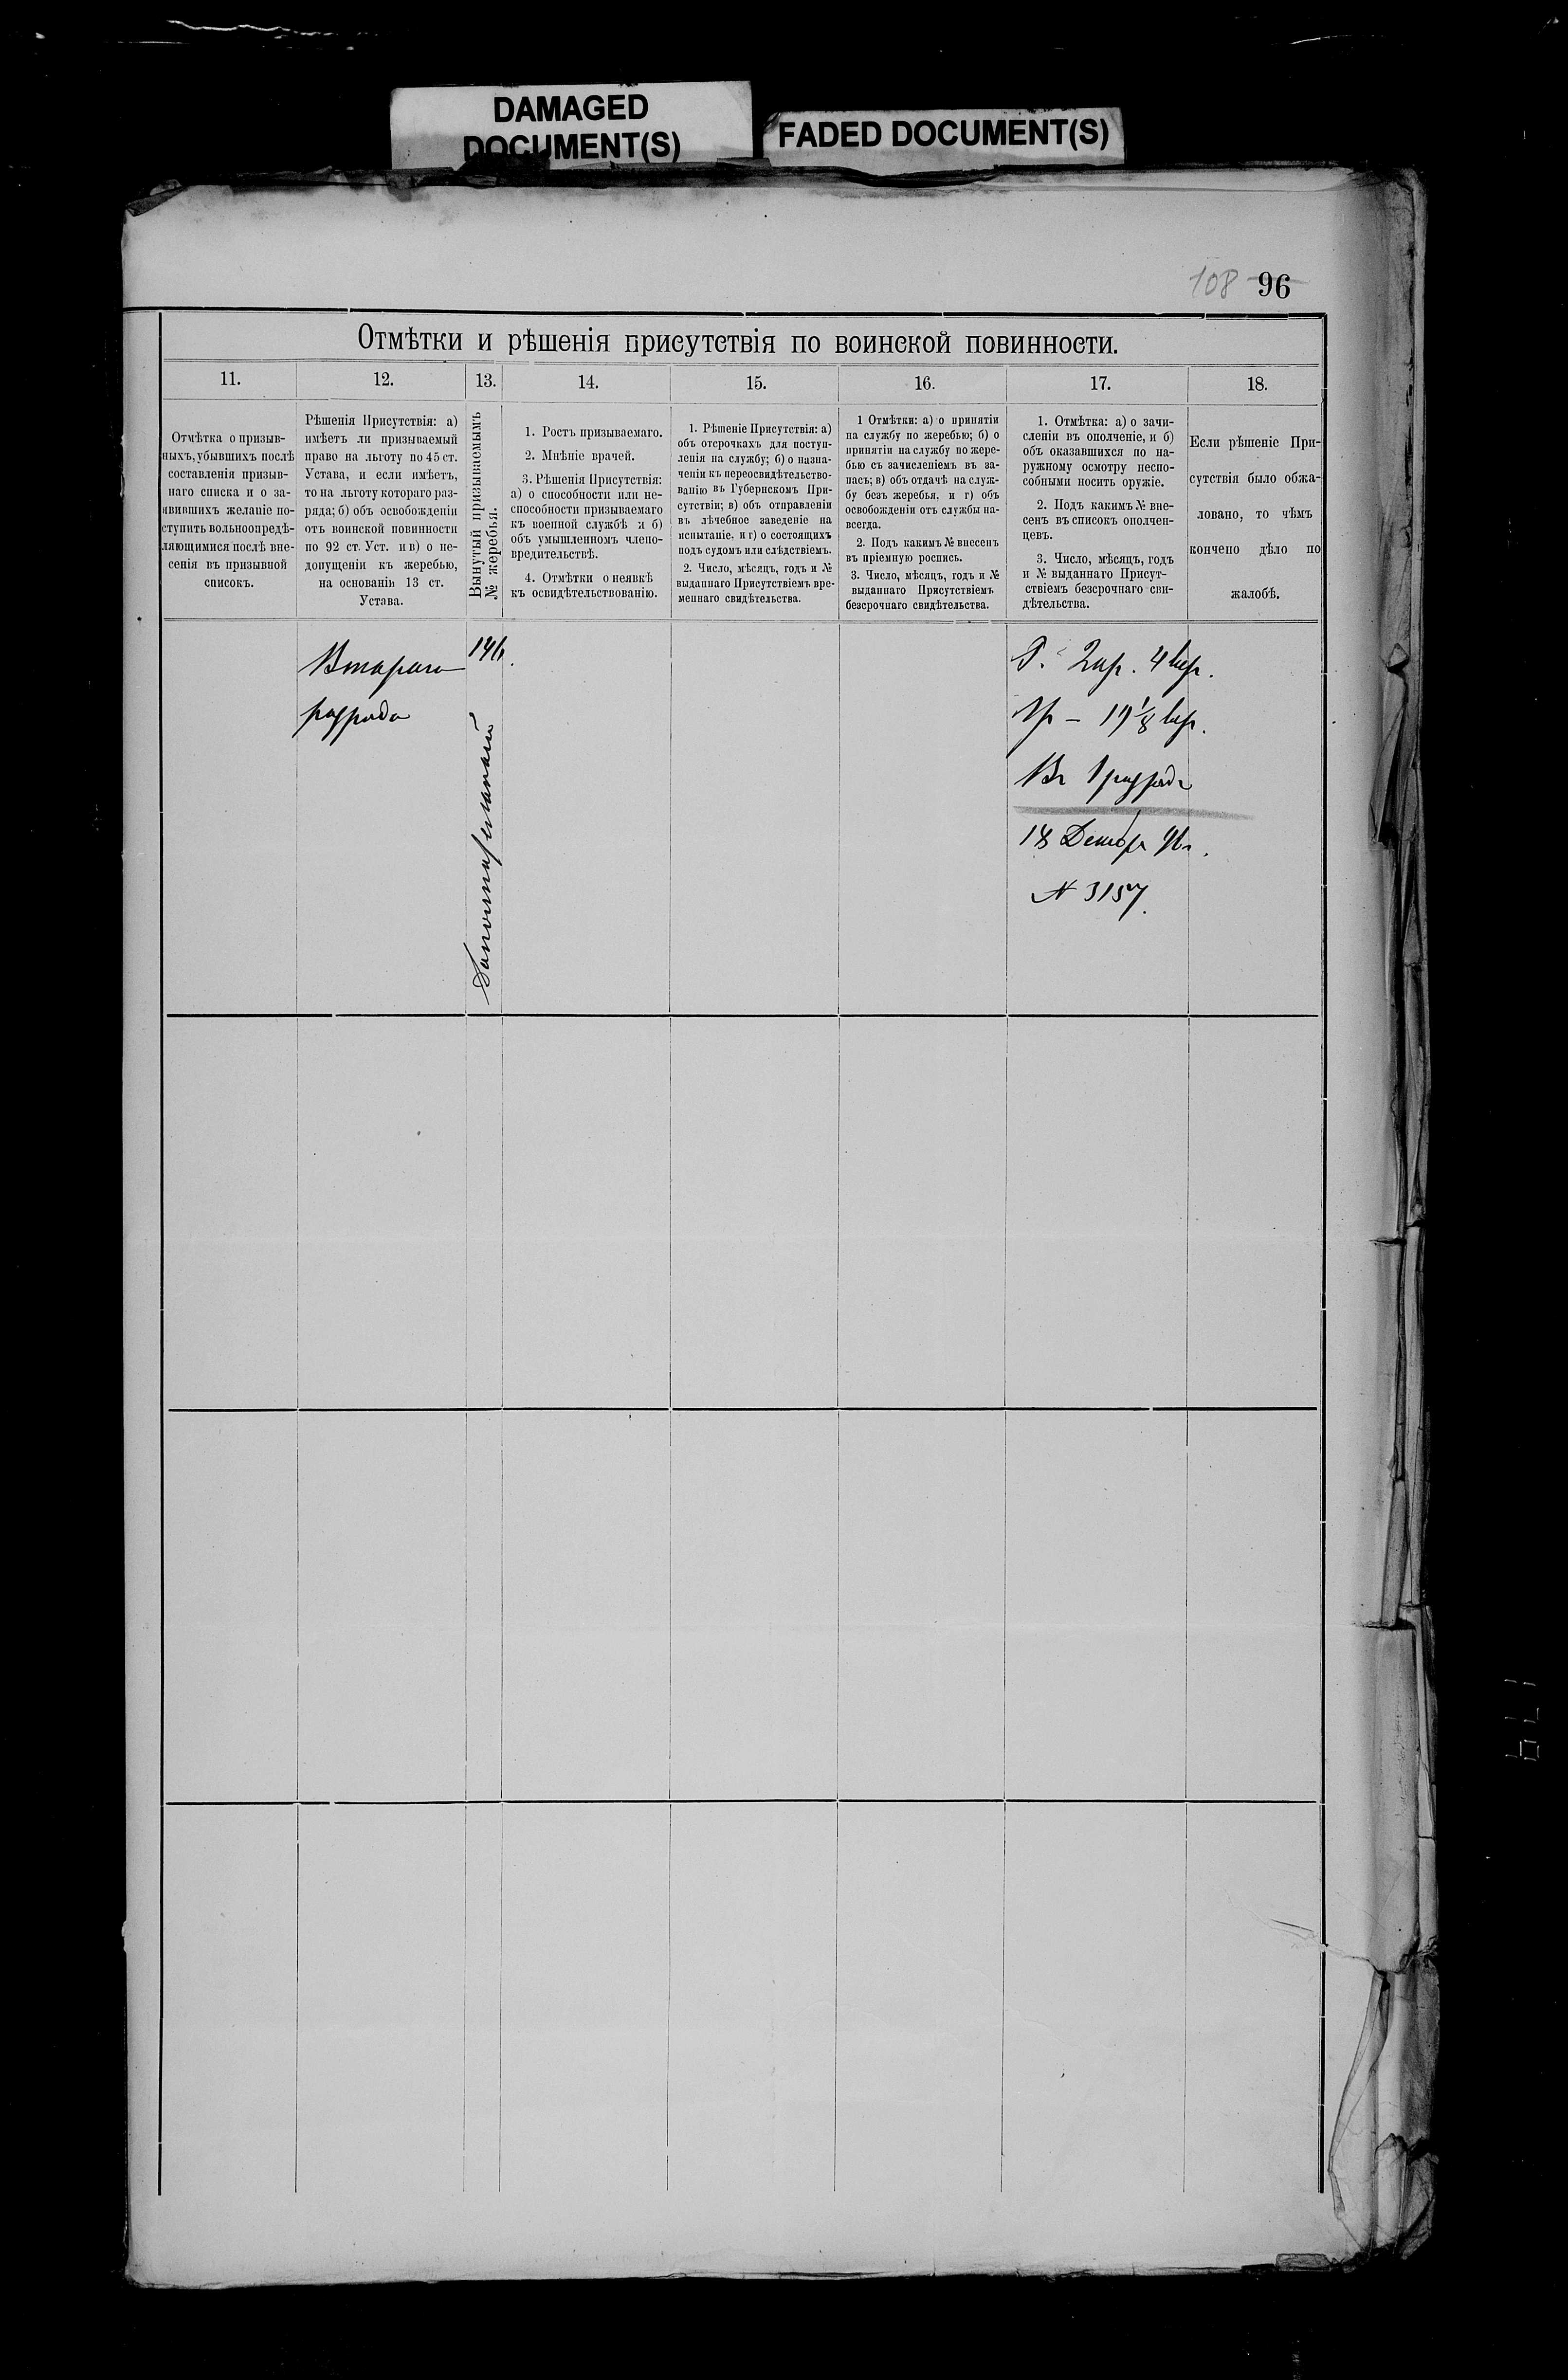 DAMAGED
DOCUMENT(S)
FADED DOCUMENT(S)
108 96
Отмѣтки и рѣшенія присутствія по воинской повинности.
11.
12.
13.
14.
15.
16.
17.
18.
Отмѣтка о призыв-
ныхъ, убывшихъ послѣ
составленія призыв-
наго списка и о за-
явившихъ желаніе по-
ступить вольноопредѣ-
ляющимися послѣ вне-
сенія въ призывной
списокъ.
Рѣшенія Присутствія: а)
имѣетъ ли призываемый
право на льготу по 45 ст.
Устава, и если имѣетъ,
то на льготу котораго раз-
ряда; б) объ освобожденіи
отъ воинской повинности
по 92 ст. Уст. и в) о не-
допущеніи къ жеребью,
на основаніи 13 ст.
Устава.
Вынутый призываемымъ
№ жеребья.
1. Ростъ призываемаго.
2. Мнѣніе врачей.
3. Рѣшенія Присутствія:
а) о способности или не-
способности призываемаго
къ военной службѣ и б)
объ умышленномъ члено-
вредительствѣ.
4. Отмѣтки о неявкѣ
къ освидѣтельствованію.
1. Рѣшеніе Присутствія: а)
объ отсрочкахъ для поступ-
ленія на службу; б) о назна-
ченіи къ переосвидѣтельство-
ванію въ Губернскомъ При-
сутствіи; в) объ отправленіи
въ лѣчебное заведеніе на
испытаніе, и г) о состоящихъ
подъ судомъ или слѣдствіемъ.
2. Число, мѣсяцъ, годъ и №
выданнаго Присутствіемъ вре-
меннаго свидѣтельства.
1 Отмѣтки: а) о принятіи
на службу по жеребью; б) о
принятіи на службу по жере-
бью съ зачисленіемъ въ за-
пасъ; в) объ отдачѣ на служ-
бу безъ жеребья, и г) объ
освобожденіи отъ службы на-
всегда.
2. Подъ какимъ № внесенъ
въ пріемную роспись.
3. Число, мѣсяцъ, годъ и №
выданнаго Присутствіемъ
безсрочнаго свидѣтельства.
1. Отмѣтка: а) о зачи-
сленіи въ ополченіе, и б)
объ оказавшихся по на-
ружному осмотру неспо-
собными носить оружіе.
2. Подъ какимъ № вне-
сенъ въ списокъ ополчен-
цевъ.
3. Число, мѣсяцъ, годъ
и № выданнаго Присут-
ствіемъ безсрочнаго сви-
дѣтельства.
Если рѣшеніе При-
сутствія было обжа-
ловано, то чѣмъ
кончено дѣло по
жалобѣ.
Втораго
разряда
146.
Р. 2 ар. 4 вер.
Гр – 19 1/8 вер.
Въ 1 разрядъ
18 Декабр 96 г.
№ 3157.
179